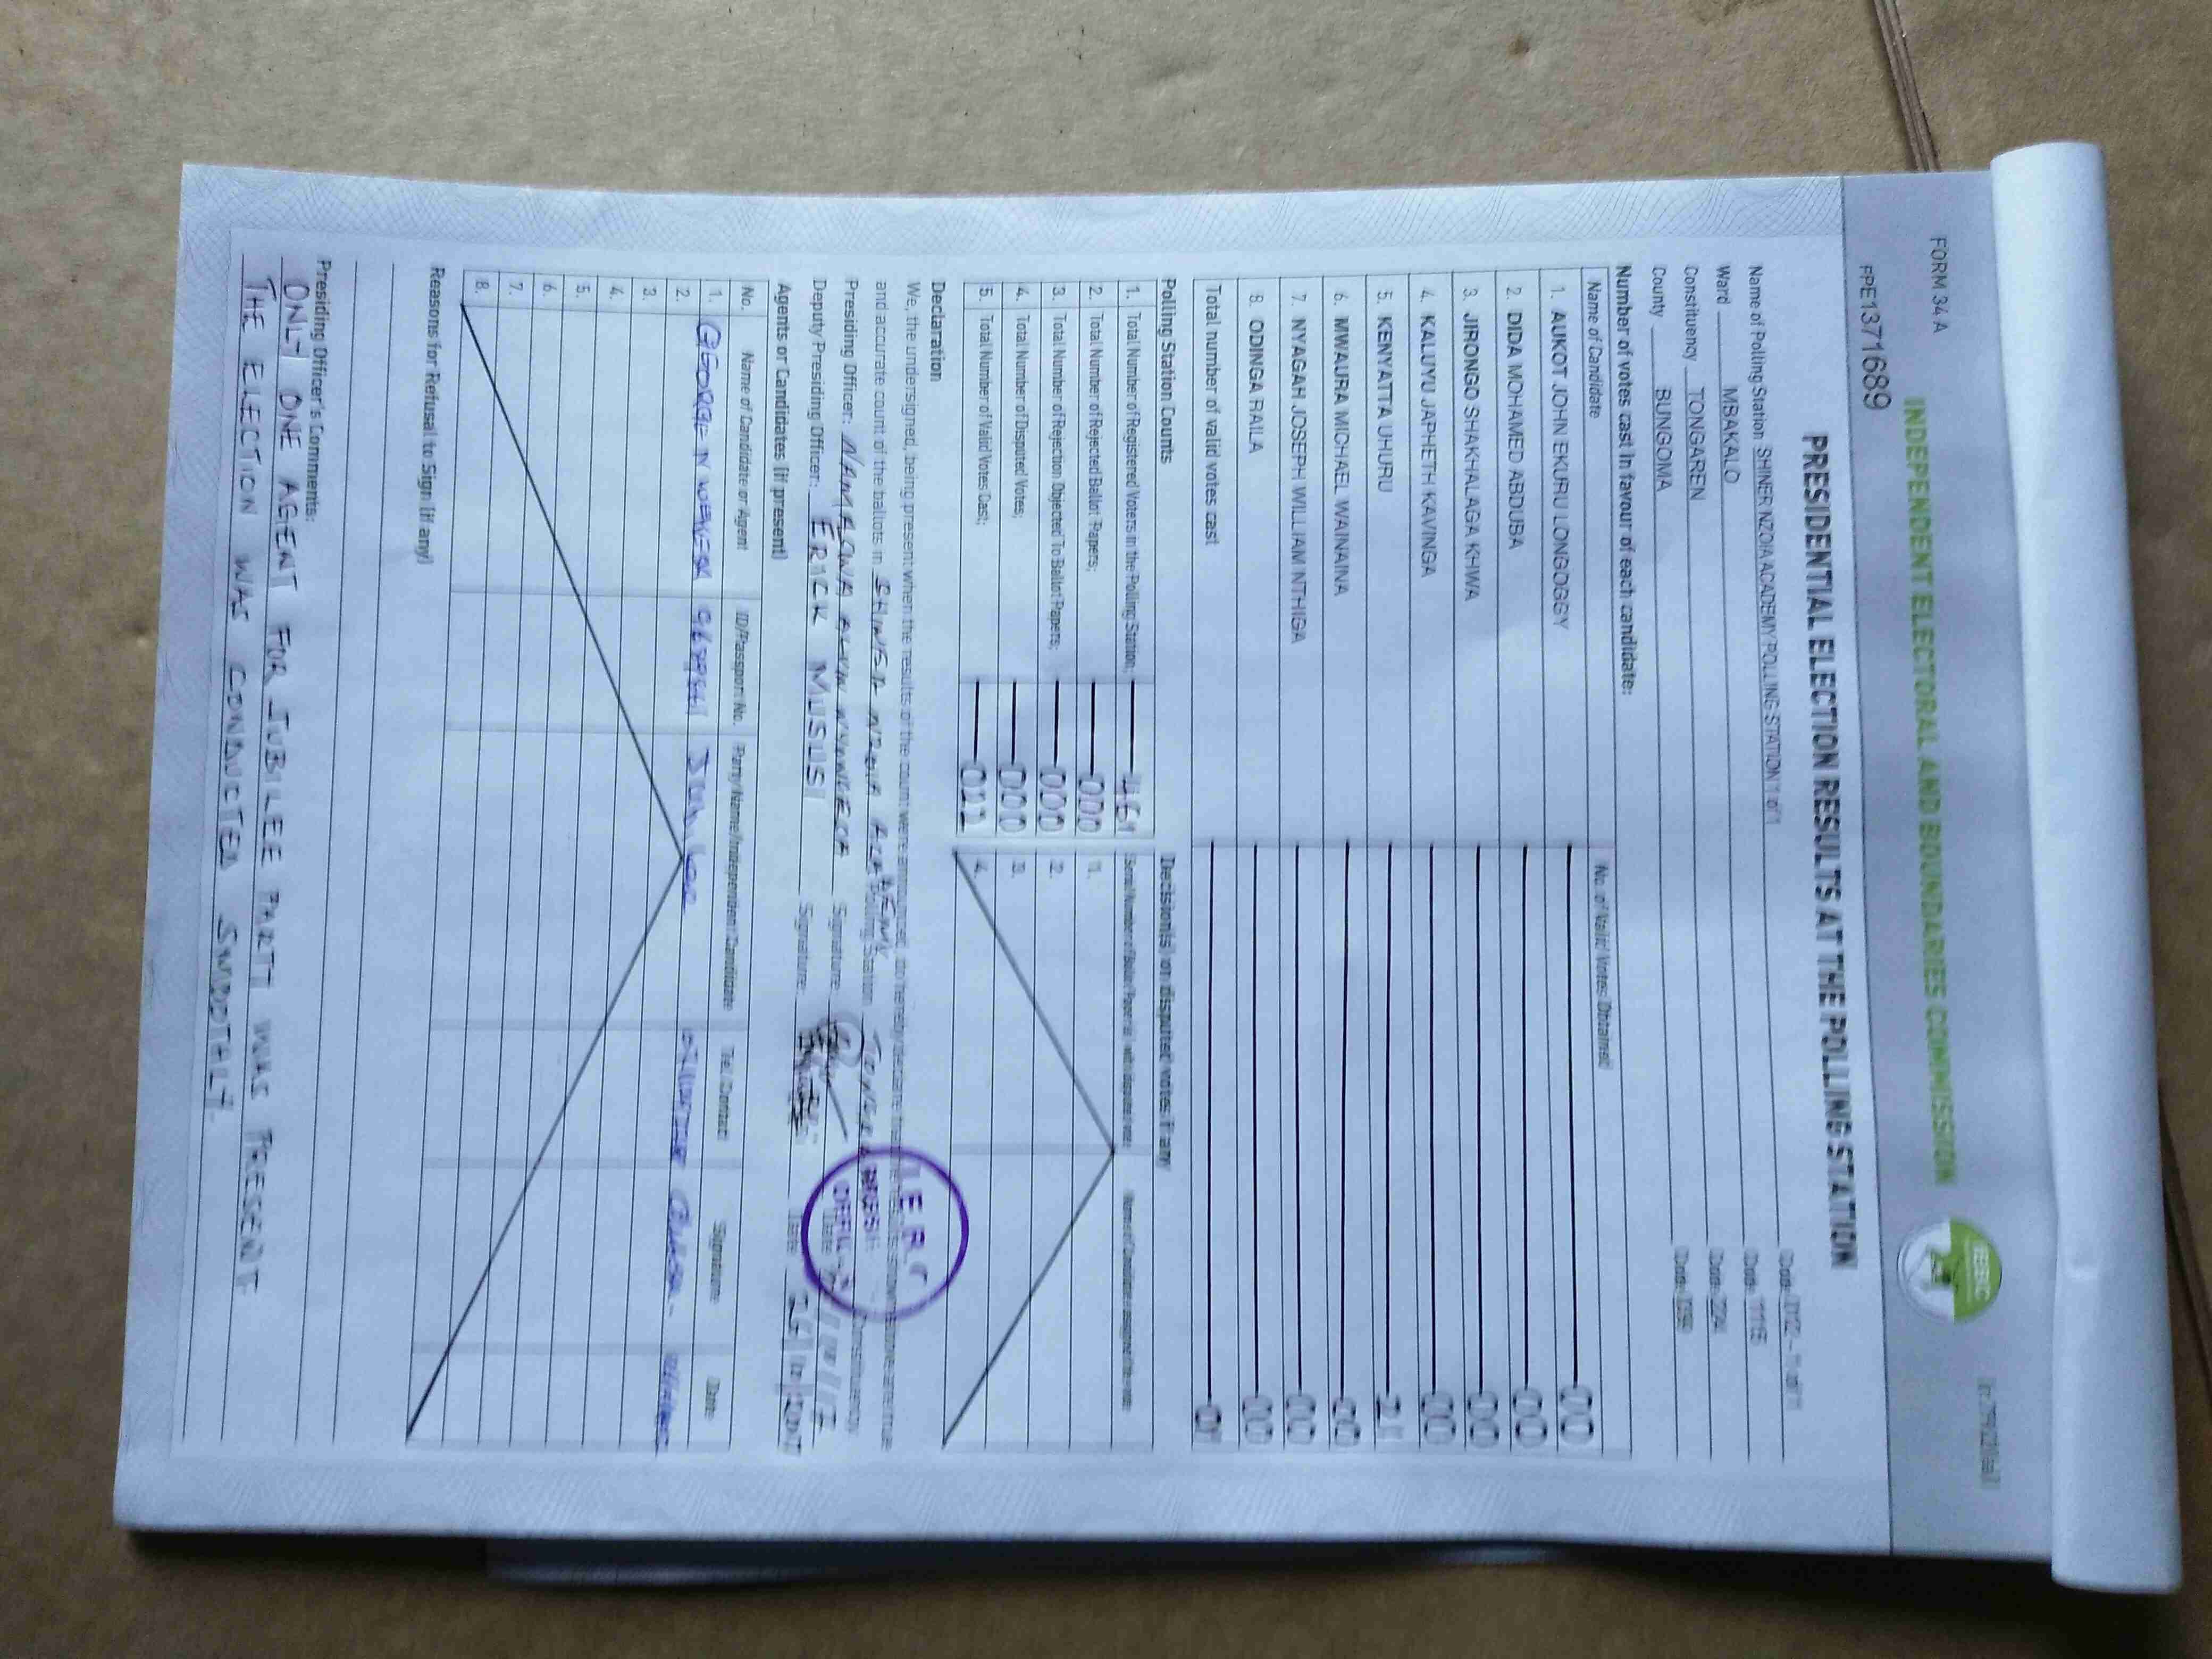 FORM 34 A
INDEPENDENT ELECTORAL AND BOUNDARIES COMMISSION
IEBC
PPE1371689
PRESIDENTIAL ELECTION RESULTS AT THE POLLING STATION
Name of Polling Station SHINER NZOIA ACADEMY POLLING STATION 1 of 1
Ward MBAKALO Code 1115
Constituency TONGAREN Code 224
County BUNGOMA Code 039
Number of votes cast in favour of each candidate:
Name of Candidate No. of Valid Votes Obtained
1. AUKOT JOHN EKURU LONGOGGY 00
2. DIDA MOHAMED ABDUBA 00
3. JIRONGO SHAKHALAGA KHWA 00
4. KALUYU JAPHETH KAVINGA 00
5. KENYATTA UHURU 21
6. MWAURA MICHAEL WAINAINA 00
7. NYAGAH JOSEPH WILLIAM NTHIGA 00
8. ODINGA RAILA 00
Total number of valid votes cast
Polling Station Counts Decision(s) on disputed votes if any
1. Total Number of Registered Voters in the Polling Station; 461
2. Total Number of Rejected Ballot Papers; 000 1.
3. Total Number of Rejection Objected To Ballot Papers; 000 2.
4. Total Number of Disputed Votes; 000 3.
5. Total Number of Valid Votes Cast; 4.
Declaration
We, the undersigned, being present when the results of the count were announced, do hereby declare that the results shown above are true
and accurate count of the ballots in SHINER NZOIA ACADEMY Polling Station Constituency
Presiding Officer: Signature: Date
Deputy Presiding Officer: ERICK MUSUSI Signature: Date
Agents or Candidates (if present)
No. Name of Candidate or Agent ID/Passport No. Party Name/Independent Candidate Tel. Contact Signature Date
1. GEORGE N
2.
3.
4.
5.
6.
7.
8.
Reasons for Refusal to Sign (if any)
Presiding Officer's Comments:
ONLY ONE AGENT FOR JUBILEE PARTY WAS PRESENT
THE ELECTION WAS CONDUCTED SMOOTHLY